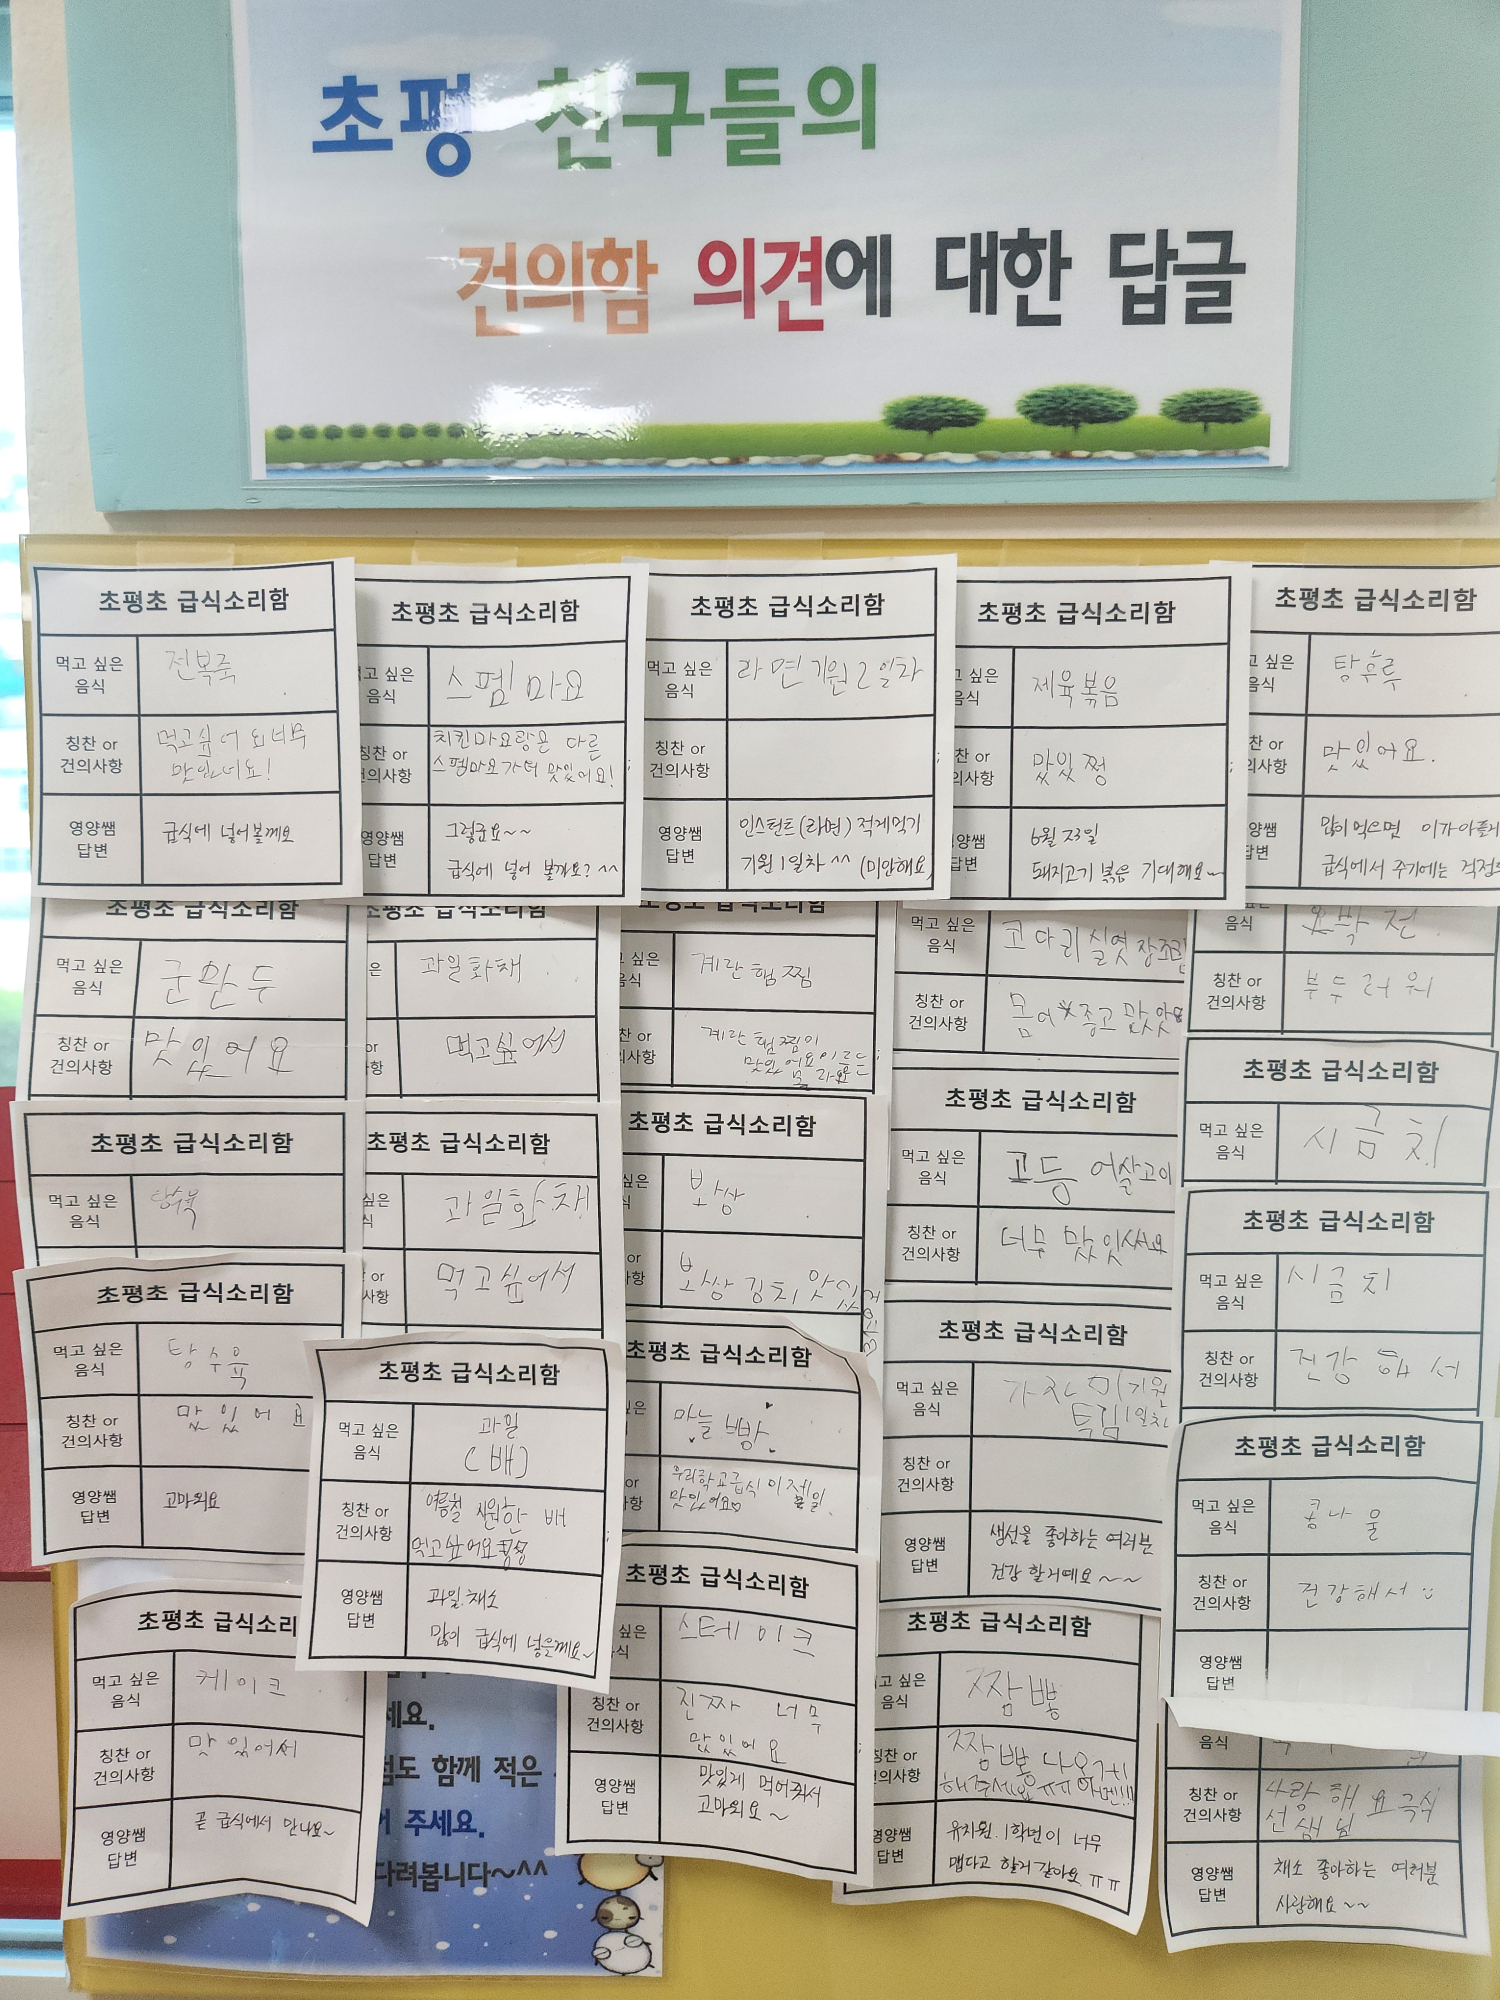 초평 친구들의
건의함 의견에 대한 답글
초평초 급식소리함
먹고 싶은
음식
전복죽
칭찬 or
건의사항
먹고싶어요 너무
맛있네요!
영양쌤
답변
급식에 넣어볼께요
초평초 급식소리함
싶은
음식
스펨마요
칭찬 or
건의사항
치킨마요랑은 다른
스펨마요가 맛있어요!
영양쌤
답변
그렇군요~~
급식에 넣어 볼까요? ^^
초평초 급식소리함
먹고 싶은
음식
라면기원 2일차
칭찬 or
건의사항
영양쌤
답변
인스턴트(라면) 적게먹기
기원 1일차 ^^ (미안해요
초평초 급식소리함
싶은
음식
제육볶음
칭찬 or
의사항
맜있쪙
영양쌤
답변
6월 23일
돼지고기 볶음 기대해요~
초평초 급식소리함
고 싶은
음식
탕후루
찬 or
의사항
맛있어요.
양쌤
답변
많이먹으면 이가아플
급식에서 주기에는 걱정
초평초 급식소리함
먹고 싶은
음식
군만두
칭찬 or
건의사항
맛있어요
초평초 급식소리함
은
과일화채
or
항
먹고싶어서
초평초 급식소리함
고 싶은
음식
계란햄찜
찬 or
의사항
계란 햄찜이
먹고 싶은
음식
코다리실엿장조림
칭찬 or
건의사항
몸에 좋고
음식
호박전
칭찬 or
건의사항
부두러워
초평초 급식소리함
먹고 싶은
음식
탕수육
초평초 급식소리함
싶은
식
과일화채
or
사항
먹고싶어서
초평초 급식소리함
싶은
식
보쌈
or
사항
보쌈김치 맛있
초평초 급식소리함
먹고 싶은
음식
고등어살고이
칭찬 or
건의사항
너무 맜있써요
초평초 급식소리함
먹고 싶은
음식
시금치
초평초 급식소리함
먹고 싶은
음식
시금치
칭찬 or
건의사항
건강해서
초평초 급식소리함
먹고 싶은
음식
탕수육
칭찬 or
건의사항
맜있어요
영양쌤
답변
고마워요
초평초 급식소리함
먹고 싶은
음식
과일
(배)
칭찬 or
건의사항
여름철 시원한 배
먹고싶어요
영양쌤
답변
과일.채소
많이 급식에 넣을께요~
초평초 급식소리함
싶은
식
마늘빵
or
사항
우리학교급식이 제일
맛있어요♡
초평초 급식소리함
먹고 싶은
음식
가자미기원
튀김 1일차
칭찬 or
건의사항
영양쌤
답변
생선을 좋아하는 여러분
건강 할거예요~~
초평초 급식소리함
먹고 싶은
음식
콩나물
칭찬 or
건의사항
건강해서
영양쌤
답변
초평초 급식소리
먹고 싶은
음식
케이크
칭찬 or
건의사항
맛있어서
영양쌤
답변
곧 급식에서 만나요~
초평초 급식소리함
싶은
음식
스테이크
칭찬 or
건의사항
진짜 너무
맜있어요
영양쌤
답변
맛있게 먹어줘서
고마워요~
초평초 급식소리함
먹고 싶은
음식
짬뽕
칭찬 or
건의사항
짬뽕 나오게
해주세요ㅠㅠ 아멘!!!
영양쌤
답변
유치원.1학년이 너무
맵다고 할거 같아요 ㅠㅠ
음식
칭찬 or
건의사항
사랑해요 급식
선생님
영양쌤
답변
채소 좋아하는 여러분
사랑해요~~
세요.
점도 함께 적은
주세요.
다려봅니다~^^